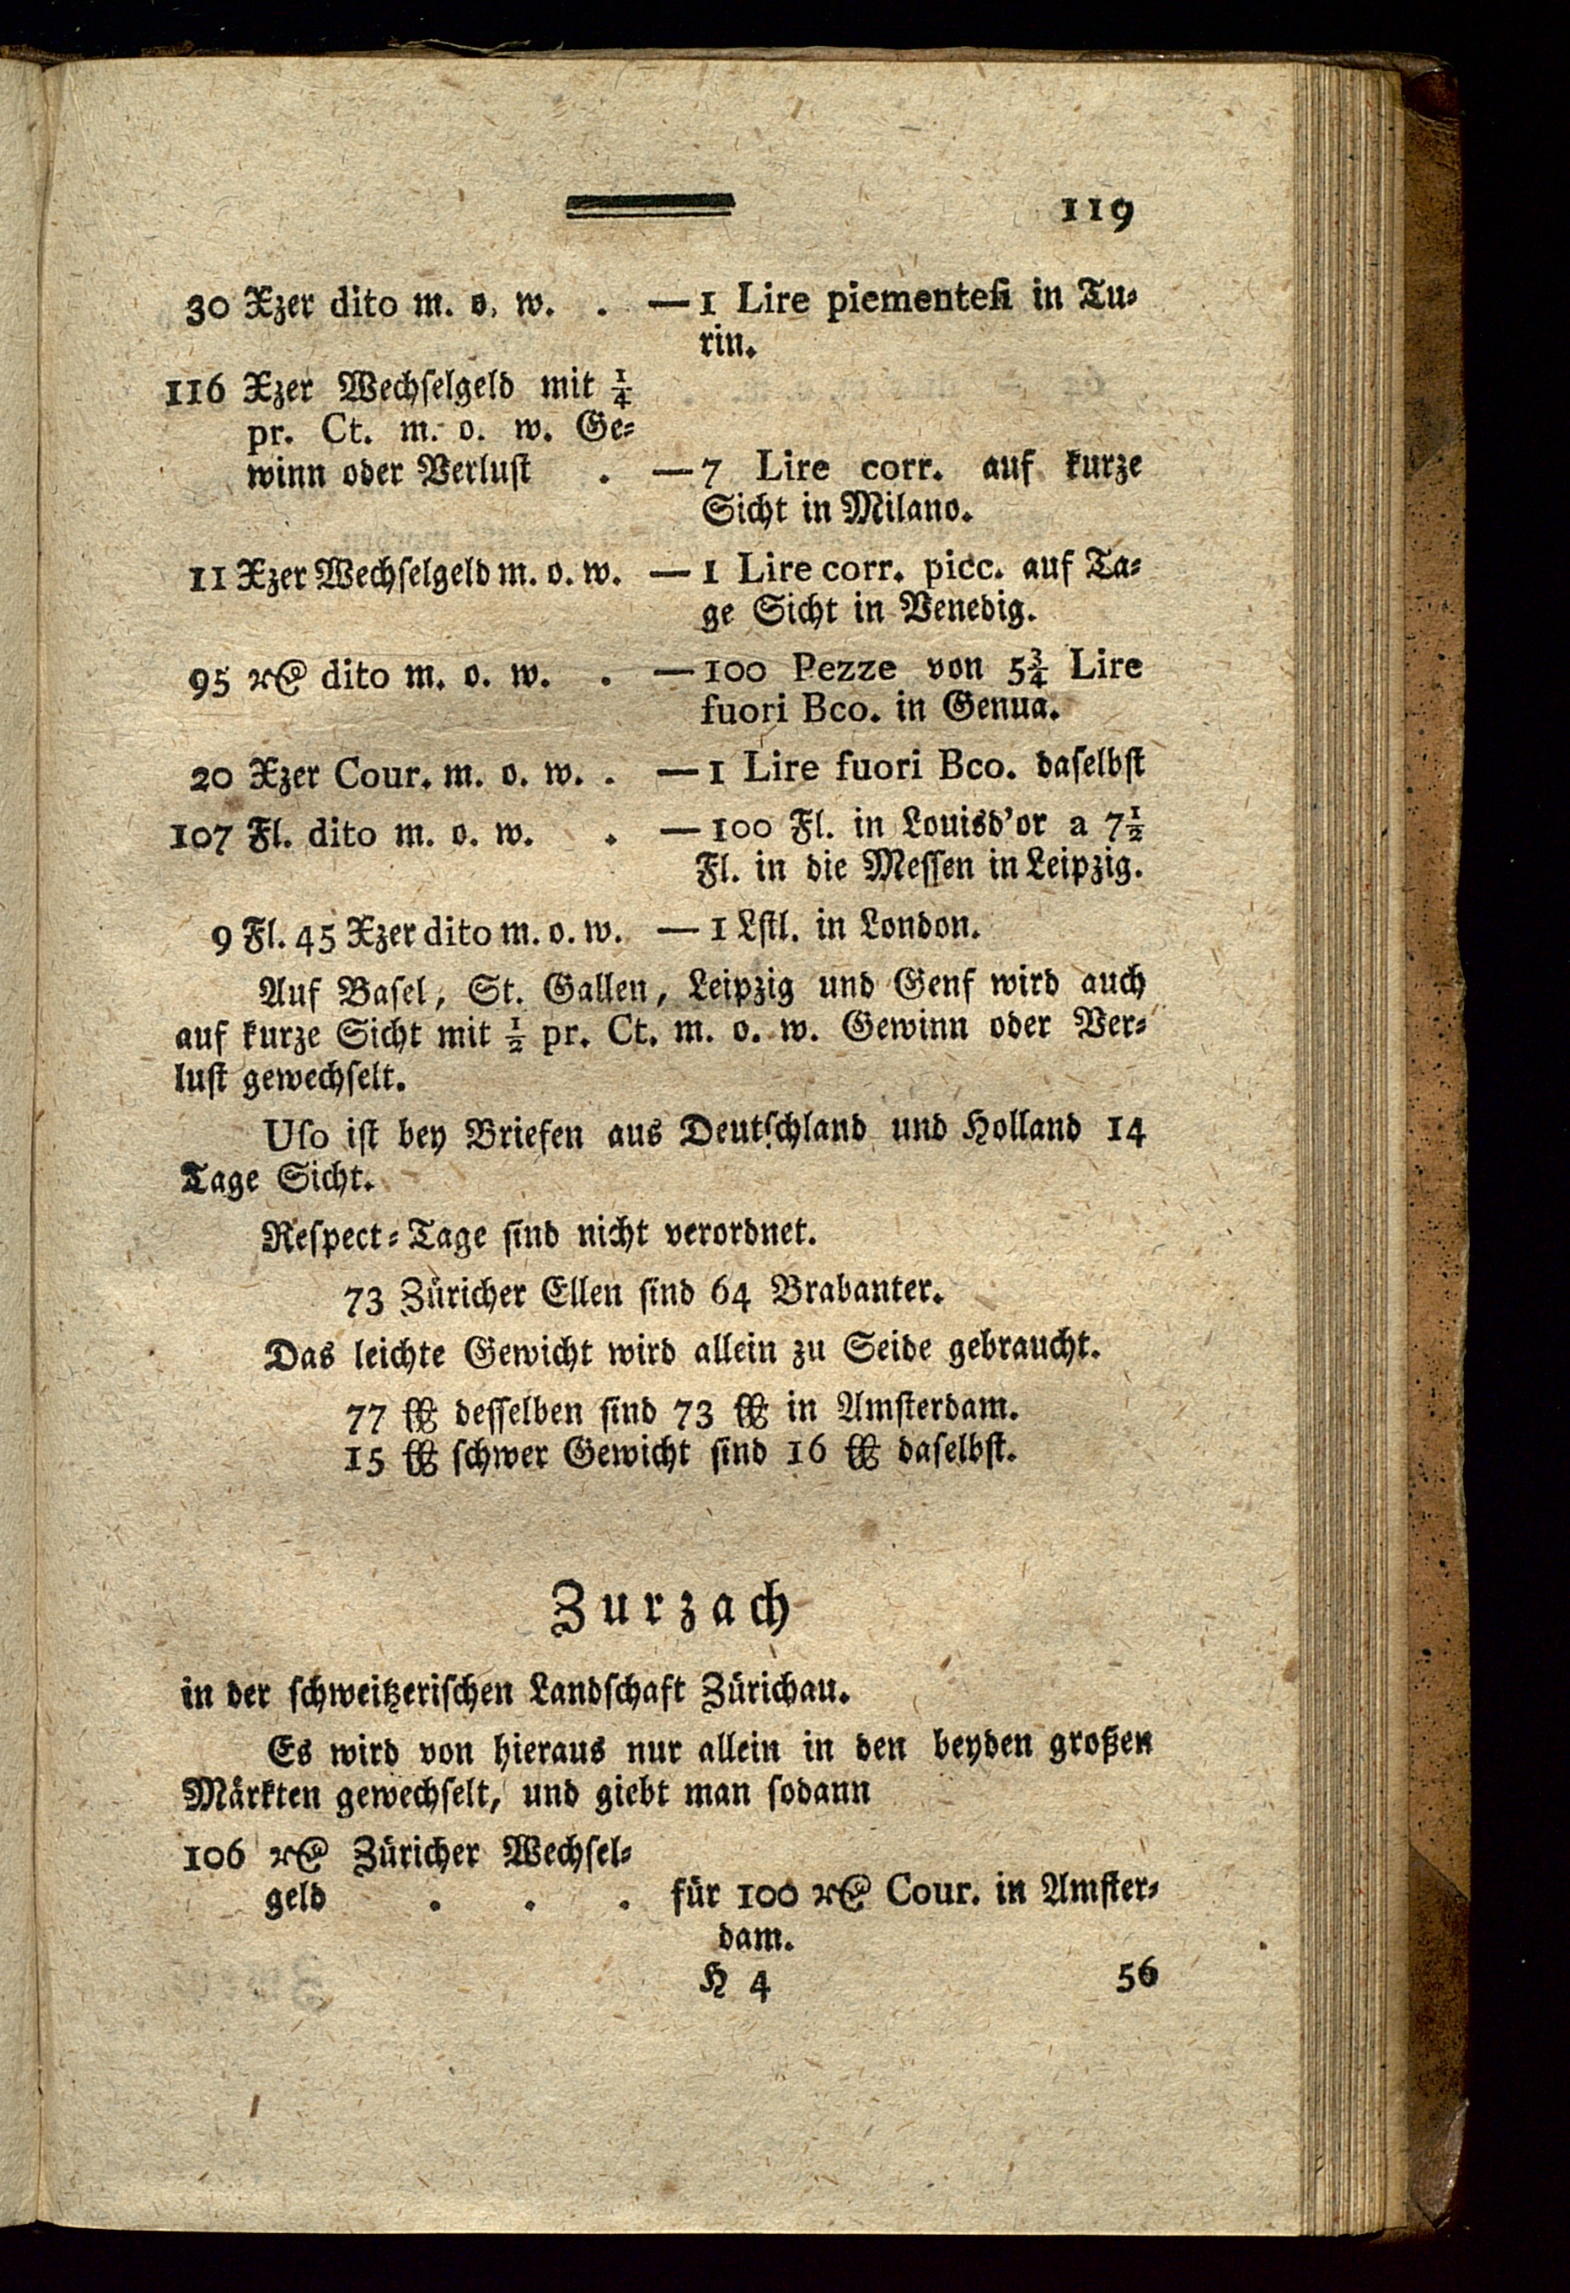 119
30 Xzer dito m. o. w. . — 1 Lire piementesi in Tu-
rin.
116 Xzer Wechselgeld mit 1/4
pr. Ct. m. o. w. Ge-
winn oder Verlust . — 7 Lire corr. auf kurze
Sicht in Milano.
11 Xzer Wechselgeld m. o. w. — 1 Lire corr. picc. auf Ta-
ge Sicht in Venedig.
95 Rthlr dito m. o. w. . — 100 Pezze von 5 3/4 Lire
fuori Bco. in Genua.
20 Xzer Cour. m. o. w. . — 1 Lire fuori Bco. daselbst
107 Fl. dito m. o. w. . — 100 Fl. in Louisd'or a 7 1/2
Fl. in die Messen in Leipzig.
9 Fl. 45 Xzer dito m. o. w. — 1 Lstl. in London.
Auf Basel, St. Gallen, Leipzig und Genf wird auch
auf kurze Sicht mit 1/2 pr. Ct. m. o. w. Gewinn oder Ver-
lust gewechselt.
Uso ist bey Briefen aus Deutschland und Holland 14
Tage Sicht.
Respect-Tage sind nicht verordnet.
73 Züricher Ellen sind 64 Brabanter.
Das leichte Gewicht wird allein zu Seide gebraucht.
77 ℔ desselben sind 73 ℔ in Amsterdam.
15 ℔ schwer Gewicht sind 16 ℔ daselbst.
Zurzach
in der schweitzerischen Landschaft Zürichau.
Es wird von hieraus nur allein in den beyden großen
Märkten gewechselt, und giebt man sodann
106 Rthlr Züricher Wechsel-
geld . . . für 100 Rthlr Cour. in Amster-
dam.
H 4 56